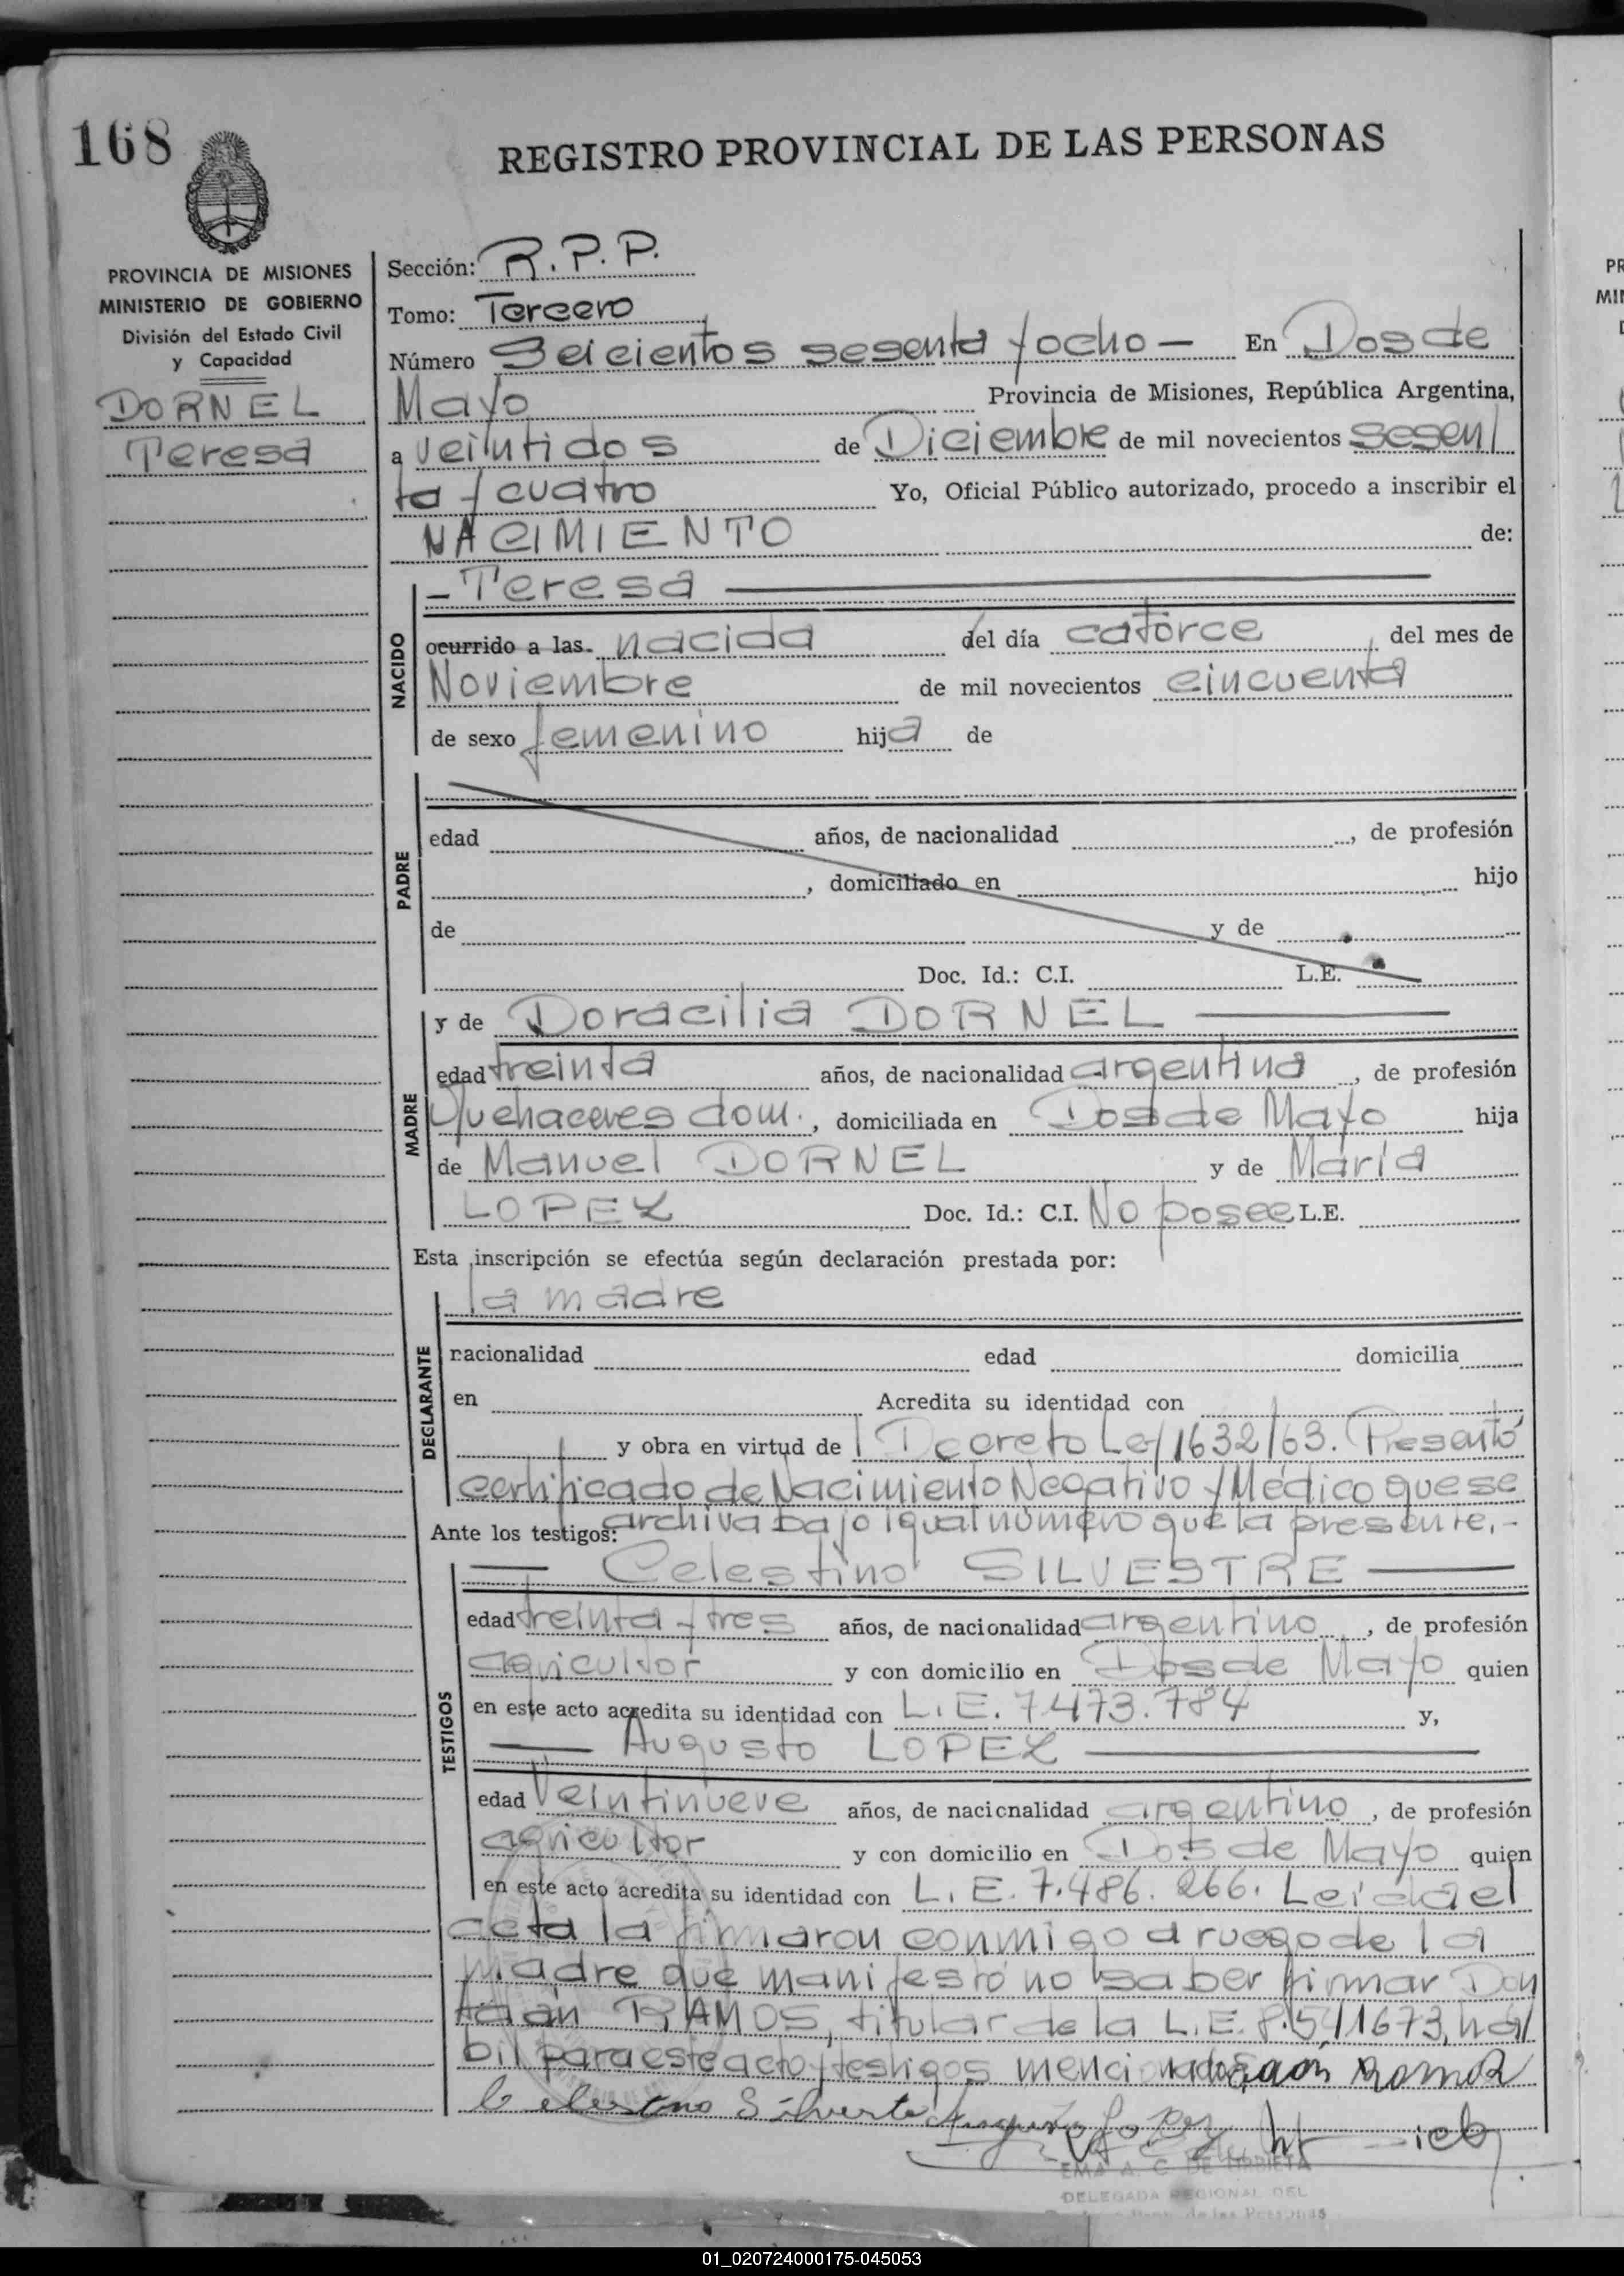 168
REGISTRO PROVINCIAL DE LAS PERSONAS
PROVINCIA DE MISIONES
MINISTERIO DE GOBIERNO
División del Estado Civil
y Capacidad
DORNEL
Teresa
Sección: R.P.P.
Tomo: Tercero
Número Seicientos sesenta y ocho — En Dos de
Mayo Provincia de Misiones, República Argentina,
a veintidos de Diciembre de mil novecientos sesen
ta y cuatro Yo, Oficial Público autorizado, procedo a inscribir el
NACIMIENTO de:
NACIDO
- Teresa
ocurrido a las. nacida del día catorce, del mes de
Noviembre de mil novecientos cincuenta
de sexo femenino hija de
PADRE
edad años, de nacionalidad , de profesión
, domiciliado en hijo
de y de
Doc. Id.: C.I. L.E.
MADRE
y de Doracilia DORNEL
edad treinta años, de nacionalidad argentina, de profesión
Quehaceres dom., domiciliada en Dos de Mayo hija
de Manuel DORNEL y de María
LOPEZ Doc. Id.: C.I. No posee L.E.
Esta inscripción se efectúa según declaración prestada por:
DECLARANTE
la madre
nacionalidad edad domicilia
en Acredita su identidad con
y obra en virtud de Decreto Ley 1632/63. Presentó
certificado de Nacimiento Negativo y Médico que se
archiva bajo igual número que la presente.-
Ante los testigos:
TESTIGOS
— Celestino SILVESTRE —
edad treinta y tres años, de nacionalidad argentino, de profesión
agricultor y con domicilio en Dos de Mayo quien
en este acto acredita su identidad con L.E. 7.473.784 y,
— Augusto LOPEZ —
edad Veintinueve años, de nacionalidad argentino, de profesión
agricultor y con domicilio en Dos de Mayo quien
en este acto acredita su identidad con L.E. 7.486.266. Leida el
acta la firmaron conmigo a ruego de la
madre que manifestó no saber firmar Don
RAMOS, titular de la L.E. 8.541673, há
bil para este acto y testigos mencionados
Celestino Silvestre Augusto Lopez
EMA A. C. DE URRIETA
DELEGADA REGIONAL DEL
de las Personas
01_020724000175-045053